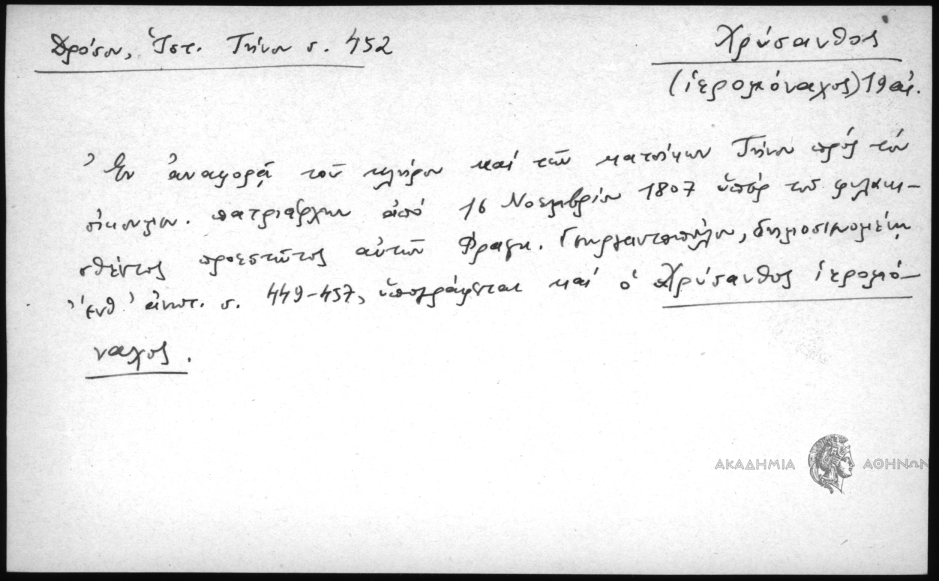 Δρόσου, Ἱστ. Τήνου σ. 452
Χρύσανθος
(ἱερομόναχος) 19 αἰ.
Ἐν ἀναφορᾷ τοῦ κλήρου καί τῶν κατοίκων Τήνου πρός τόν
οἰκουμεν. πατριάρχην ἀπό 16 Νοεμβρίου 1807 ὑπέρ τοῦ φυλακι-
σθέντος προεστῶτος αὐτῶν Φραγκ. δημοσιευομένῃ
ἔνθ' ἀνωτ. σ. 449-457, ὑπογράφεται καί ὁ Χρύσανθος ἱερομό-
ναχος.
ΑΚΑΔΗΜΙΑ ΑΘΗΝΩΝ